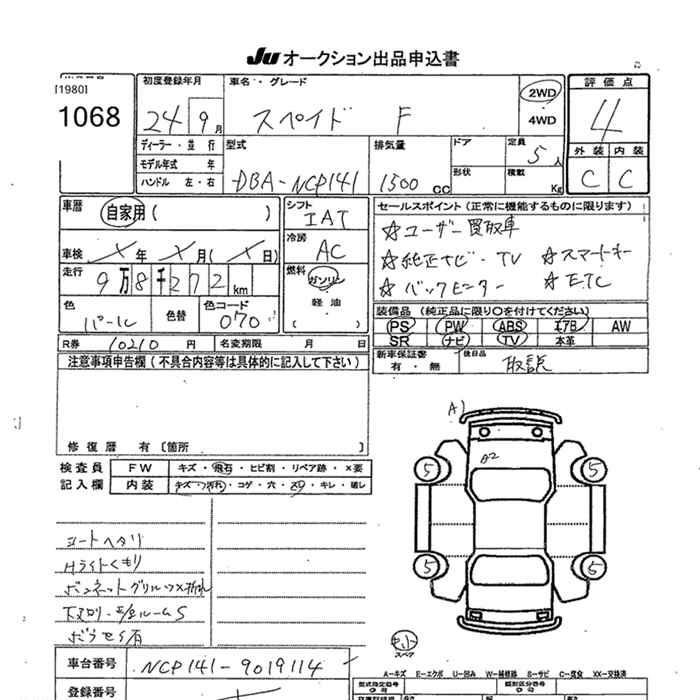 JU オークション出品申込書
[1980]
1068
初度登録年月
24 9月
車名・グレード
スペイド F
2WD
4WD
評価点
4
外装 内装
C C
ディーラー・並行
モデル年式 年
ハンドル 左・右
型式
DBA-NCP141
排気量
1500 CC
ドア
形状
定員
5人
積載
Kg
車歴
自家用 ( )
シフト
IAT
冷房
AC
車検 年 月 ( 日)
走行
9万8千272km
燃料
ガソリン
軽油
( )
色
パール
色替
色コード
070
セールスポイント (正常に機能するものに限ります)
☆ユーザー買取車
☆純正ナビ・TV ☆スマートキー
☆バックモニター ☆ETC
装備品 (純正品に限り○を付けてください)
PS PW ABS エアB AW
SR ナビ TV 本革
R券 10210 円 名変期限 月 日
新車保証書
有・無
後日品
取説
注意事項申告欄 (不具合内容等は具体的に記入して下さい)
修復歴 有 〔箇所
検査員
記入欄
FW キズ・飛石・ヒビ割・リペア跡・×要
内装 キズ・汚れ・コゲ・穴・スリ・キレ・破レ
A1
A2
5 5
5 5
シートヘタリ
Hライトくもり
中小
スペア
車台番号 NCP141-9019114
登録番号
A=キズ E=エクボ U=凹み W=補修跡 S=サビ C=腐食 XX=交換済
型式指定番号
類別区分番号